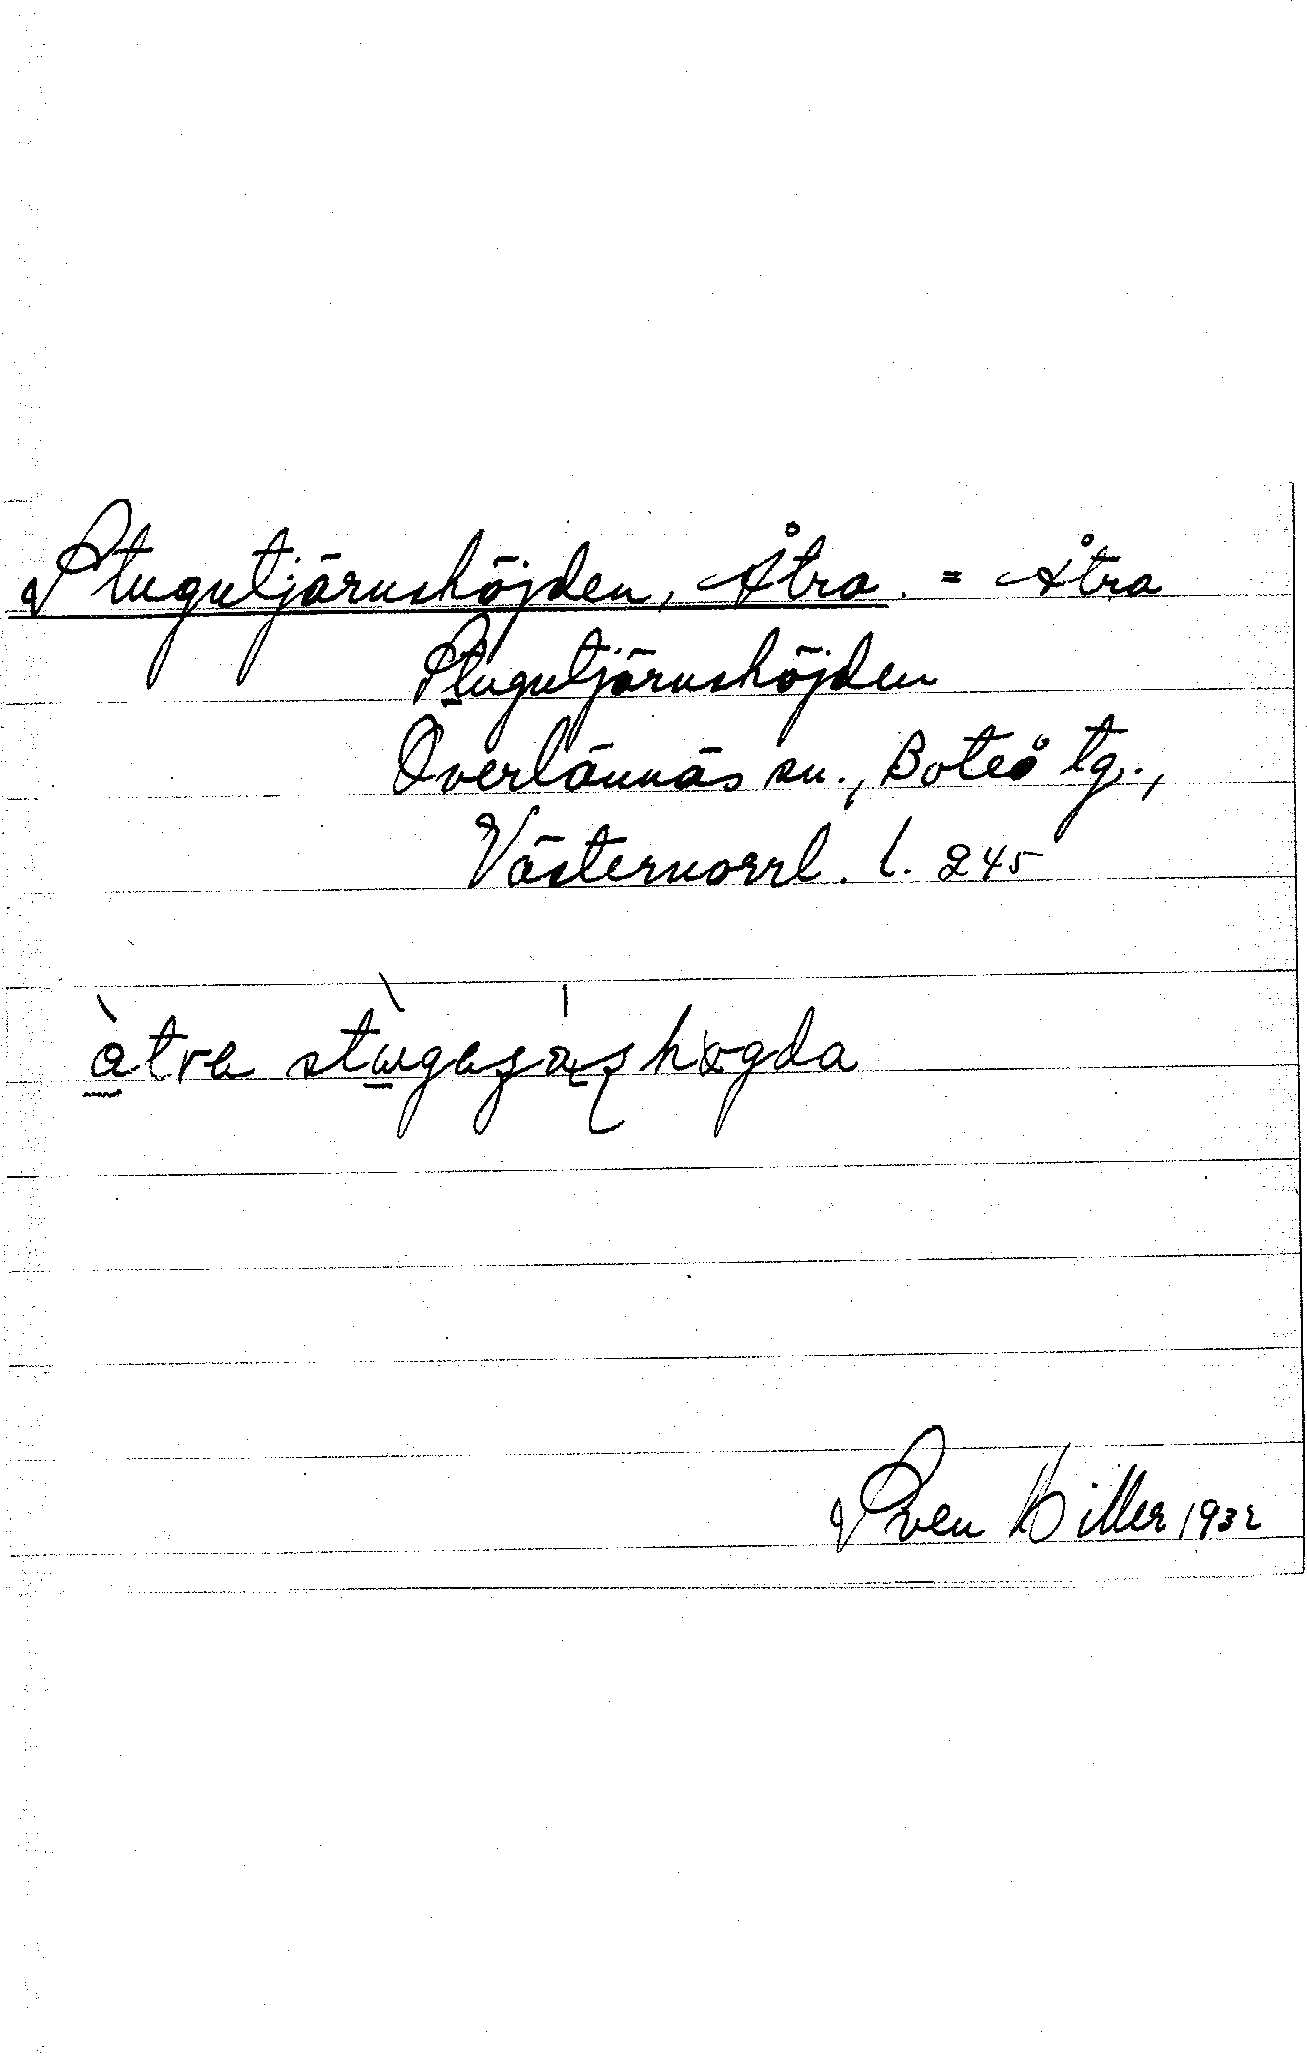 Stugutjärnshöjden, Åtra. = Åtra
Stugutjärnshöjden
Överlännäs sn., Boteå tg.,
Västernorrl. l. 245
àtra
Sven Hiller 1932